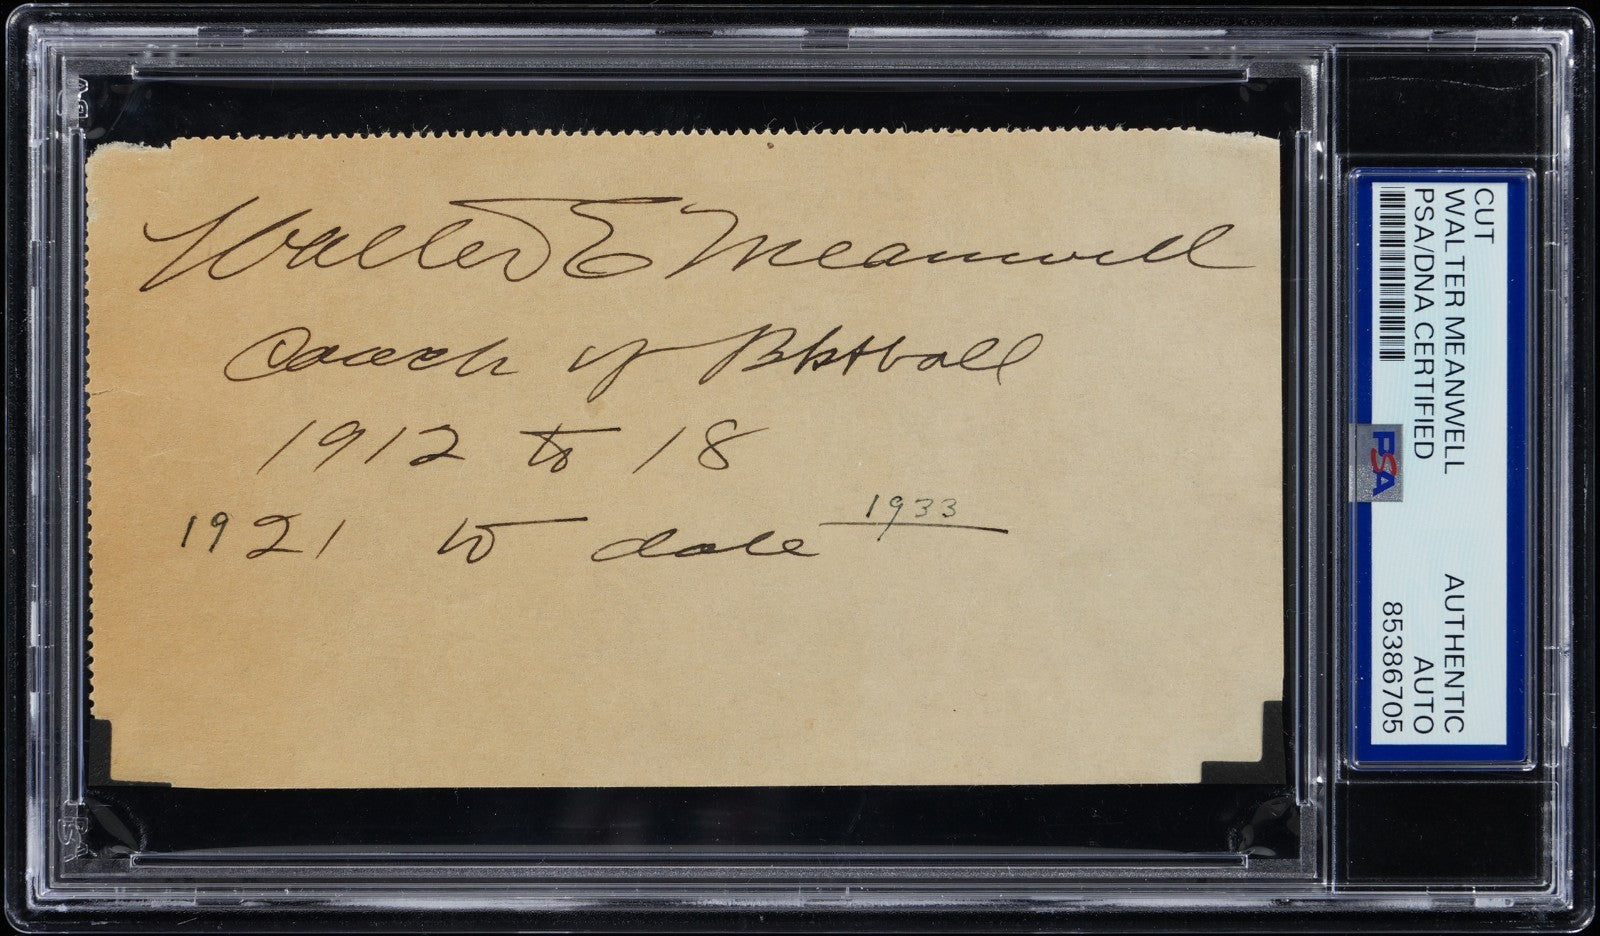 Walter E Meanwell
Coach of Bkstball
1912 to 18
1921 to date 1933
CUT
WALTER MEANWELL
PSA/DNA CERTIFIED
AUTHENTIC
AUTO
85386705
PSA